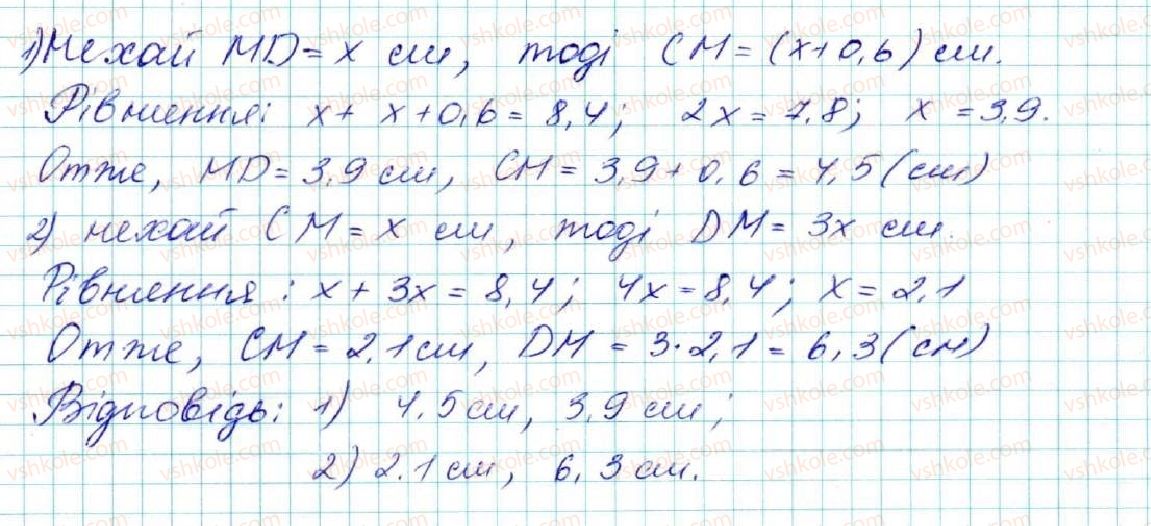 1) Нехай MD = x см, тоді CM = (x+0,6) см.
Рівняння: x + x + 0,6 = 8,4; 2x = 7,8; x = 3,9.
Отже, MD = 3,9 см, CM = 3,9 + 0,6 = 4,5 (см)
2) нехай CM = x см, тоді DM = 3x см.
Рівняння: x + 3x = 8,4; 4x = 8,4; x = 2,1
Отже, CM = 2,1 см, DM = 3·2,1 = 6,3 (см)
Відповідь: 1) 4,5 см, 3,9 см;
2) 2,1 см, 6,3 см.